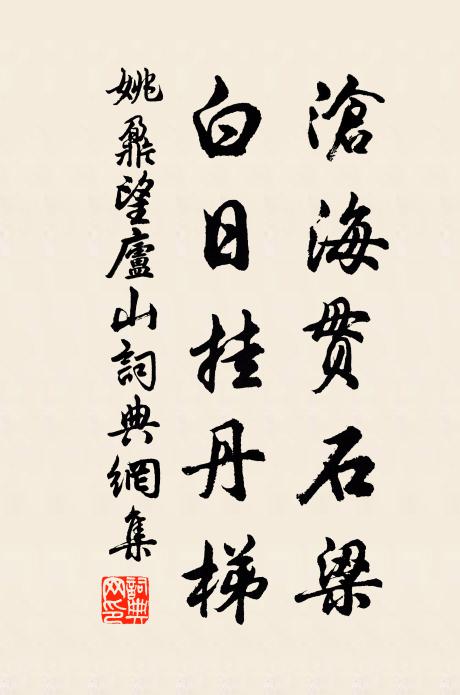 滄海貫石梁
白日挂丹梯
姚鼐望廬山詞典網集
詞典网印